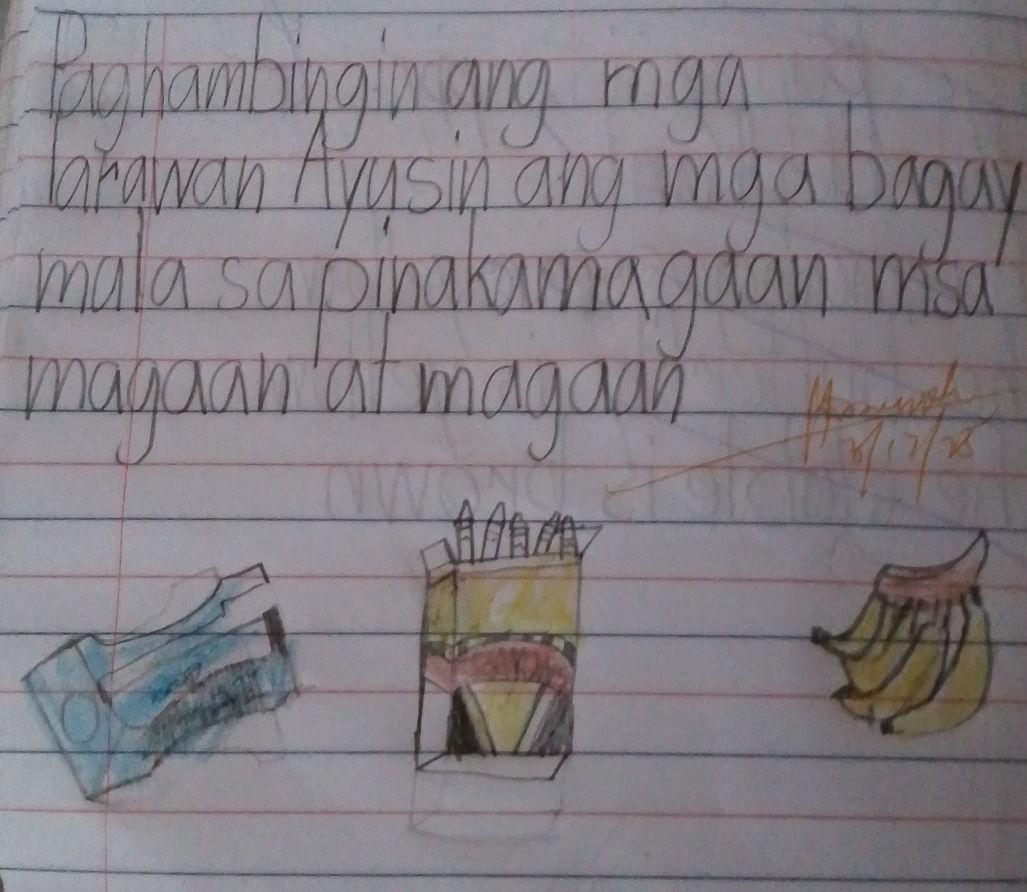 Paghambingin ang mga
larawan Ayusin ang mga bagay
mala sa pinakamagaan msa
magaan at magaan